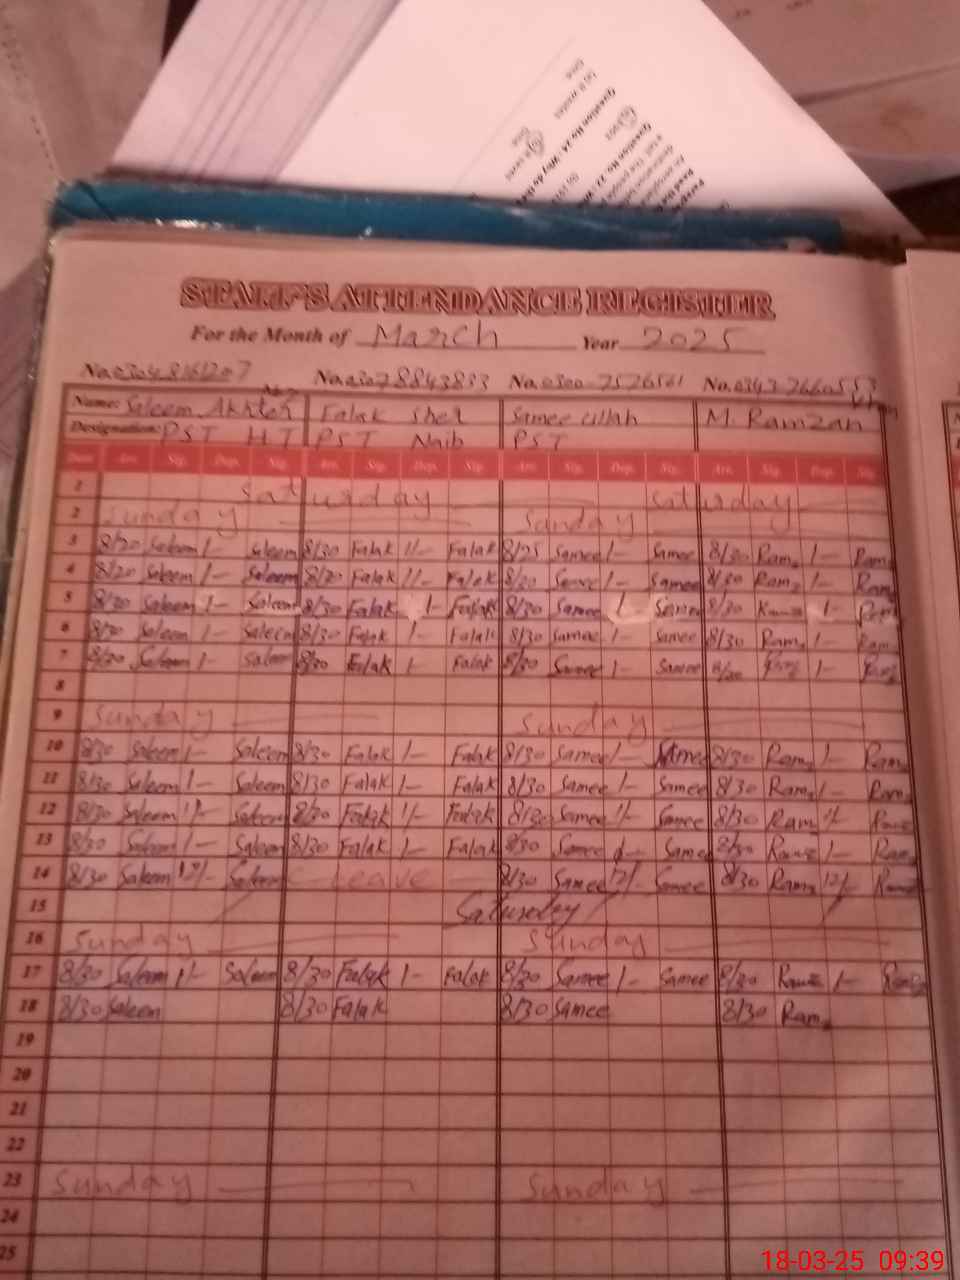 STAFF'S ATTENDANCE REGISTER
For the Month of March Year 2025
No. 03048161207 No. 03078843833 No. 0300-7526561 No. 0343-7660553
Name: Saleem Akhter Falak Sher Samee Ullah M. Ramzan
Designation: PST HT PST Naib PST
Date Arr. Sig. Dep. Sig. Arr. Sig. Dep. Sig. Arr. Sig. Dep. Sig. Arr. Sig. Dep. Sig.
1 Saturday Saturday
2 Sunday Sunday
3 8/20 Saleem 1/- Saleem 8/30 Falak 1/- Falak 8/25 Samee 1/- Samee 8/30 Ramz 1/- Ramz
4 8/20 Saleem 1/- Saleem 8/20 Falak 1/- Falak 8/20 Samee 1/- Samee 8/30 Ramz 1/- Ram
5 8/20 Saleem 1- Saleem 8/30 Falak 1- Falak 8/30 Samee 1- Samee 8/30 1-
6 8/30 Saleem 1- Saleem 8/30 Falak 1- Falak 8/30 Samee 1- Samee 8/30 Ramz 1- Ram
7 8/20 Saleem 1- Saleem 8/20 Falak 1- Falak 8/20 Samee 1- Samee 8/20 1-
8
9 Sunday Sunday
10 8/30 Saleem 1- Saleem 8/30 Falak 1- Falak 8/30 Samee 1- Samee 8/30 Ramz 1- Ram
11 8/30 Saleem 1- Saleem 8/30 Falak 1- Falak 8/30 Samee 1- Samee 8/30 Ramz 1- Ram
12 8/30 Saleem 1/- Saleem 8/30 Falak 1/- Falak 8/30 Samee 1/- Samee 8/30 Ramz 1/-
13 8/30 Saleem 1- Saleem 8/30 Falak 1- Falak 8/30 Samee 1- Samee 8/30 Ramz 1- Ram
14 8/30 Saleem 12/- Saleem Leave 8/30 Samee 12/- Samee 8/30 Ramz 12/-
15 Saturday
16 Sunday Sunday
17 8/30 Saleem 1- Saleem 8/30 Falak 1- Falak 8/30 Samee 1- Samee 8/30 Ramz 1-
18 8/30 Saleem 8/30 Falak 8/30 Samee 8/30 Ramz
19
20
21
22
23 Sunday Sunday
24
25
18-03-25 09:39